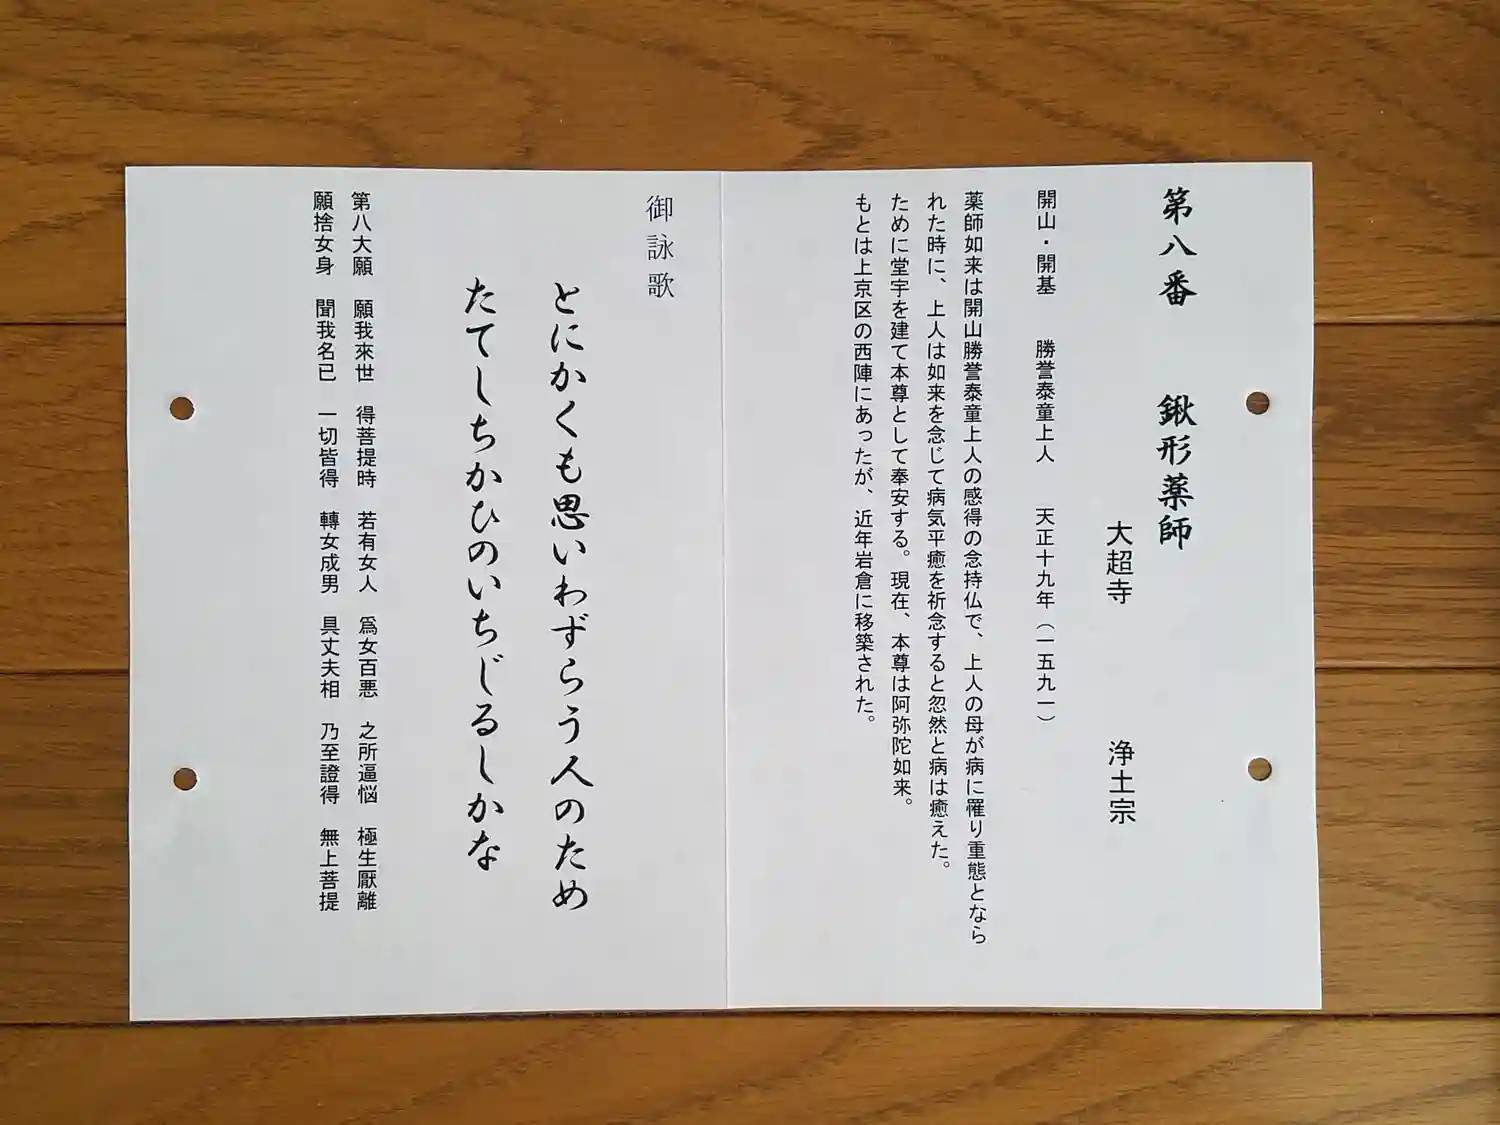 第八番　鍬形薬師
大超寺　浄土宗
開山・開基　勝誉泰童上人　天正十九年（一五九一）
薬師如来は開山勝誉泰童上人の感得の念持仏で、上人の母が病に罹り重態となら
れた時に、上人は如来を念じて病気平癒を祈念すると忽然と病は癒えた。
ために堂宇を建て本尊として奉安する。現在、本尊は阿弥陀如来。
もとは上京区の西陣にあったが、近年岩倉に移築された。
御詠歌
とにかくも思いわずらう人のため
たてしちかひのいちじるしかな
第八大願　願我來世　得菩提時　若有女人　爲女百悪　之所逼悩　極生厭離
願捨女身　聞我名已　一切皆得　轉女成男　具丈夫相　乃至證得　無上菩提